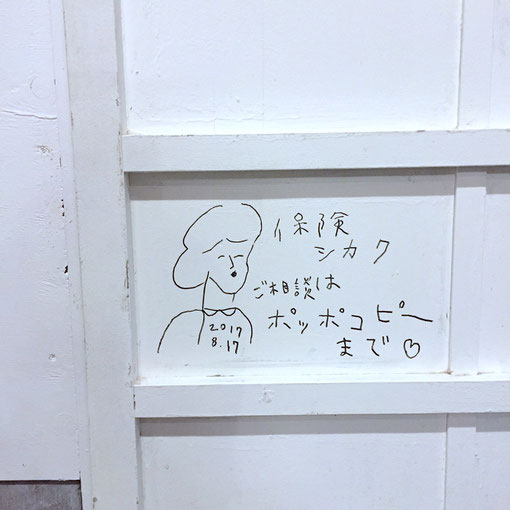 保険
シカク
ご相談は
ポッポコピー
まで♡
2017
8.17